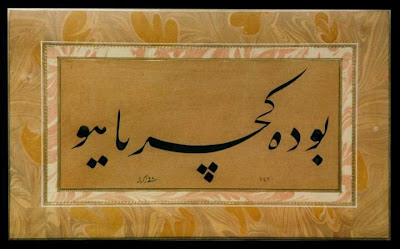 بو ده کچر یا هو